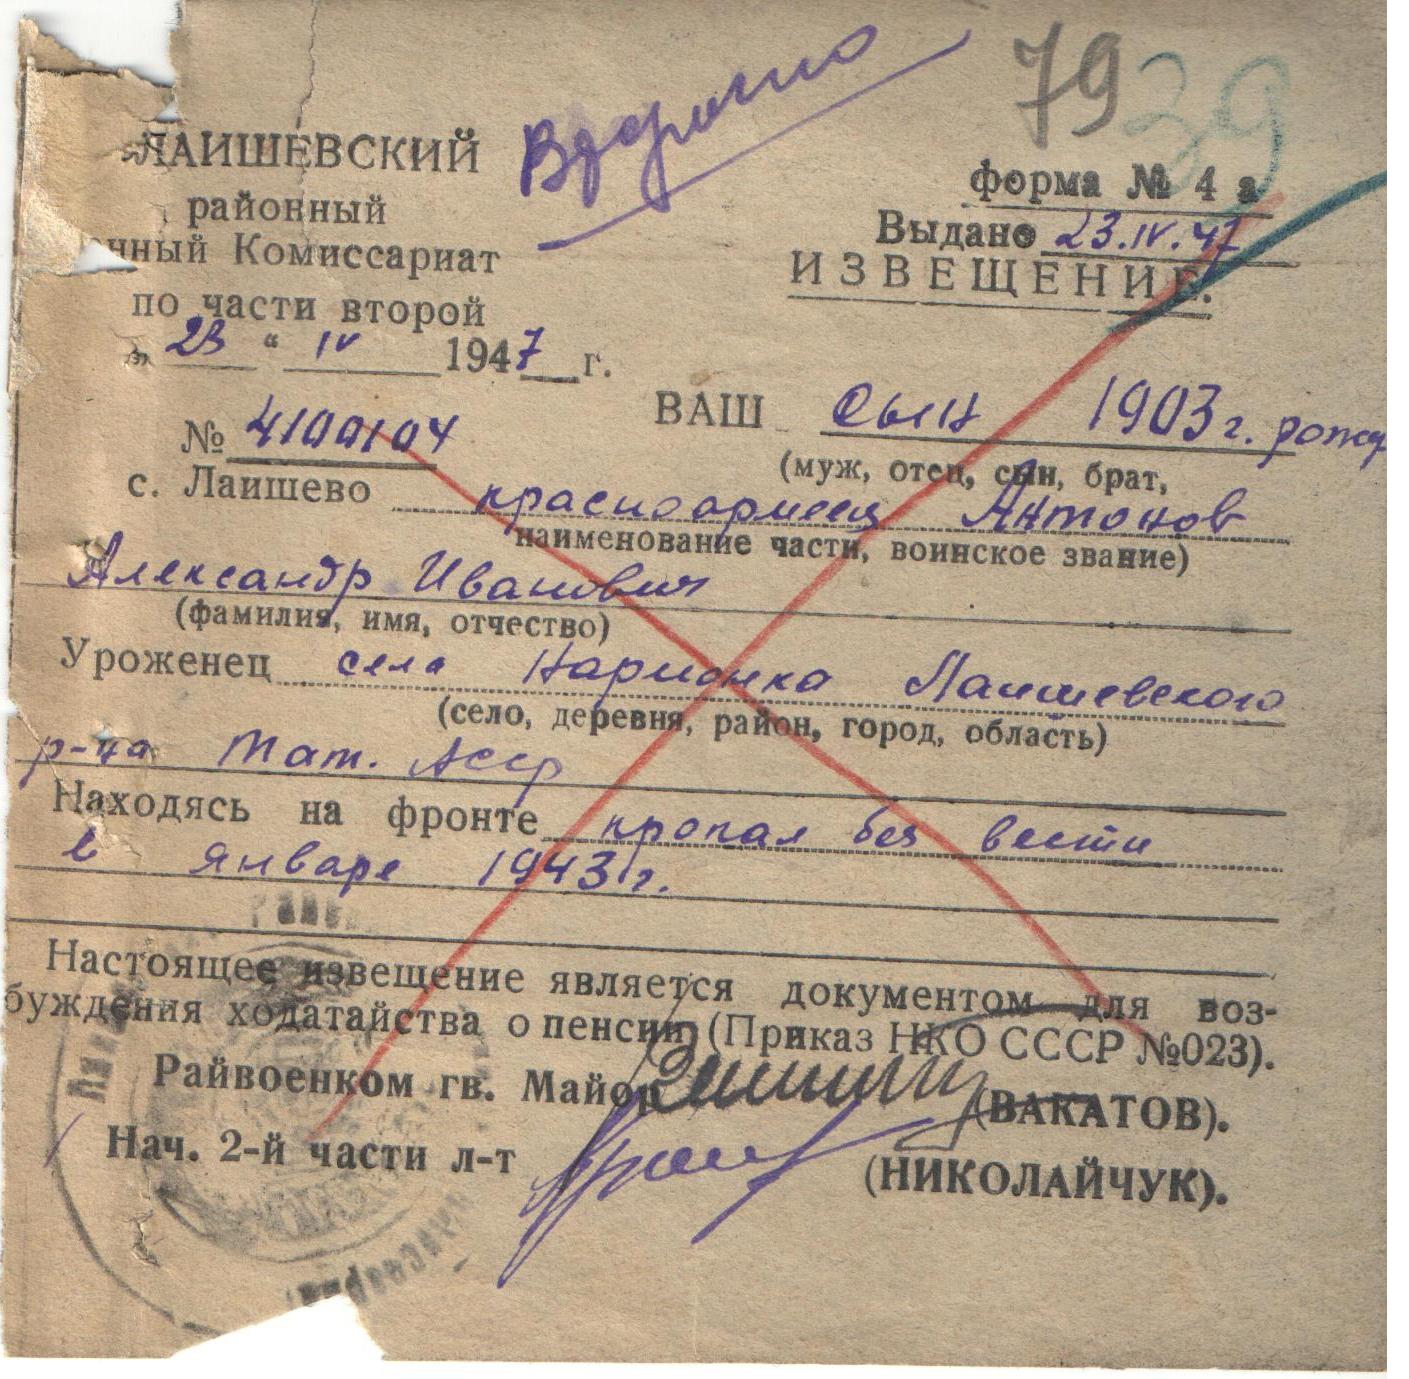 79 39
Вторично
ЛАИШЕВСКИЙ
районный
нный Комиссариат
по части второй
„ 23 “ IV 1947 г.
№ 4100104
с. Лаишево
форма № 4 а
Выдано 23.IV.47
ИЗВЕЩЕНИЕ.
ВАШ сын 1903 г. рожд
(муж, отец, сын, брат,
красноармеец Антонов
наименование части, воинское звание)
Александр Иванович
(фамилия, имя, отчество)
Уроженец села Нармонка Лаишевского
(село, деревня, район, город, область)
р-на Тат. АССР
Находясь на фронте пропал без вести
в январе 1943 г.
Настоящее извещение является документом для воз-
буждения ходатайства о пенсии (Приказ НКО СССР №023).
Райвоенком гв. Майор (ВАКАТОВ).
Нач. 2-й части л-т (НИКОЛАЙЧУК).